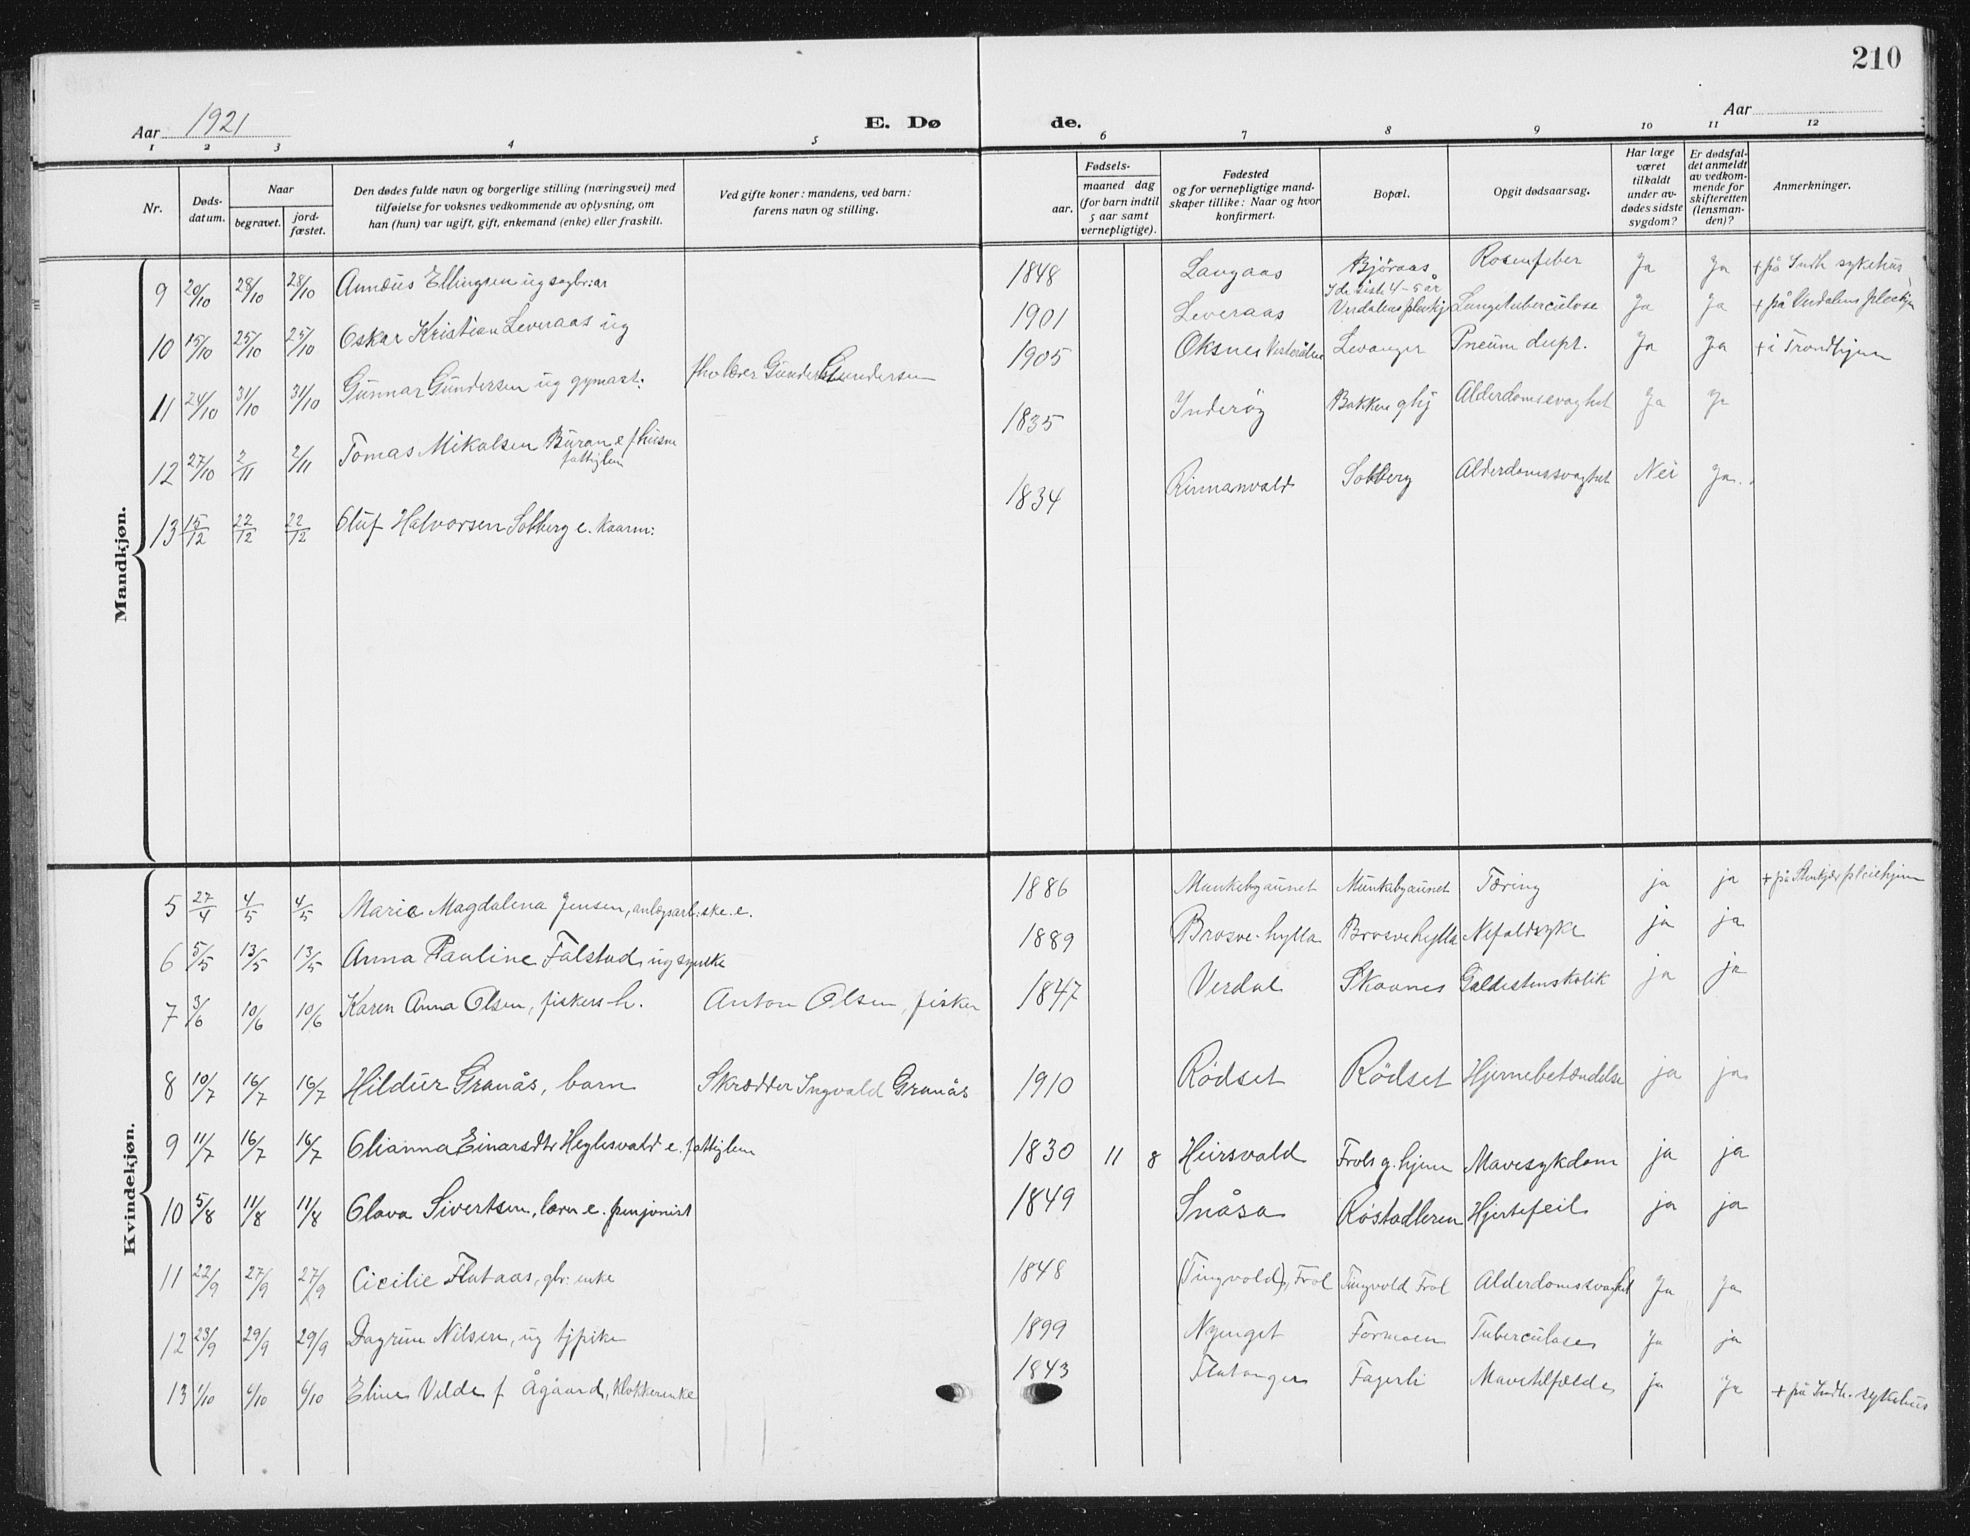 210
Aar 1921
E. Døde.
Aar
1 2 3 4 5 6 7 8 9 10 11 12
Nr.
Døds-
datum.
Naar
begravet.
jord-
fæstet.
Den dødes fulde navn og borgerlige stilling (næringsvei) med
tilføielse for voksnes vedkommende av oplysning, om
han (hun) var ugift, gift, enkemand (enke) eller fraskilt.
Ved gifte koner: mandens, ved barn:
farens navn og stilling.
Fødsels-
aar.
maaned dag
(for barn indtil
5 aar samt
vernepligtige).
Fødested
og for vernepligtige mand-
skaper tillike: Naar og hvor
konfirmert.
Bopæl.
Opgit dødsaarsag.
Har læge
været
tilkaldt
under av-
dødes sidste
sygdom?
Er dødsfal-
det anmeldt
av vedkom-
mende for
skifteretten
(lensman-
den)?
Anmerkninger.
Mandkjøn.
9 20/10 28/10 28/10 Annæus Ellingsen ug sagbr:ar 1848 Langaas Björaas Rosenfeber Ja Ja + på Indh sykehus
I de siste 4-5 år
10 15/10 25/10 25/10 Oskar Kristian Leveraas ug 1901 Leveraas Verdalens pleihj Lungetuberculose Ja Ja + på Verdalens pleiehjm
11 24/10 31/10 31/10 Gunnar Gundersen ug gymast: fhv lærer Gunder Gundersen 1905 Oksnes Vesterålen Levanger Pneum dupl. Ja Ja + i Trondhjem
12 27/10 2/11 2/11 Tomas Mikalsen Buran e f husm 1835 Inderöy Bakken ghj Alderdomsvaghet Ja Ja
fattiglem
13 15/12 22/12 22/12 Oluf Halvorsen Solberg e. kaarm: 1834 Rinnanvald Solberg Alderdomssvaghet Nei Ja
Kvindekjøn.
5 27/4 4/5 4/5 Marie Magdalena Jensen, anlægsarb:ske. e. 1886 Munkebyaunet Munkebyaunet Tæring ja ja + på Stenkjær pleiehjem
6 5/5 13/5 13/5 Anna Pauline Falstad, ug sypike 1889 Brosve-hylla Brosvehylla Nefaldsyke ja ja
7 3/6 10/6 10/6 Karen Anna Olsen, fiskers h. Anton Olsen, fisker 1847 Verdal Skaanes Galdestenskolik ja ja
8 10/7 16/7 16/7 Hildur Granås, barn Skrædder Ingvald Granås 1910 Rödset Rödset Hjernebetændelse ja ja
9 11/7 16/7 16/7 Olianna Einarsdtr Heglesvald e. fattiglem 1830 11 8 Heirsvald Frols g.hjem Mavesykdom ja ja
10 5/8 11/8 11/8 Olava Sivertsen, lærer e. pensjonist 1849 Snåsa Röstadleren Hjertefeil ja ja
11 22/9 27/9 27/9 Cicilie Flataas, gbr: enke 1848 (Tingvold), Frol Tingvold Frol Alderdomssvaghet Ja Ja
12 23/9 29/9 29/9 Dagrun Nilsen, ug tjpike 1899 Nyenget Formoen Tuberculose Ja ja
13 1/10 6/10 6/10 Eline Velde f. Ågaard, klokkerenke 1843 Flatanger Fagerli Mavetilfælde Ja Ja + på Indh. sykehus